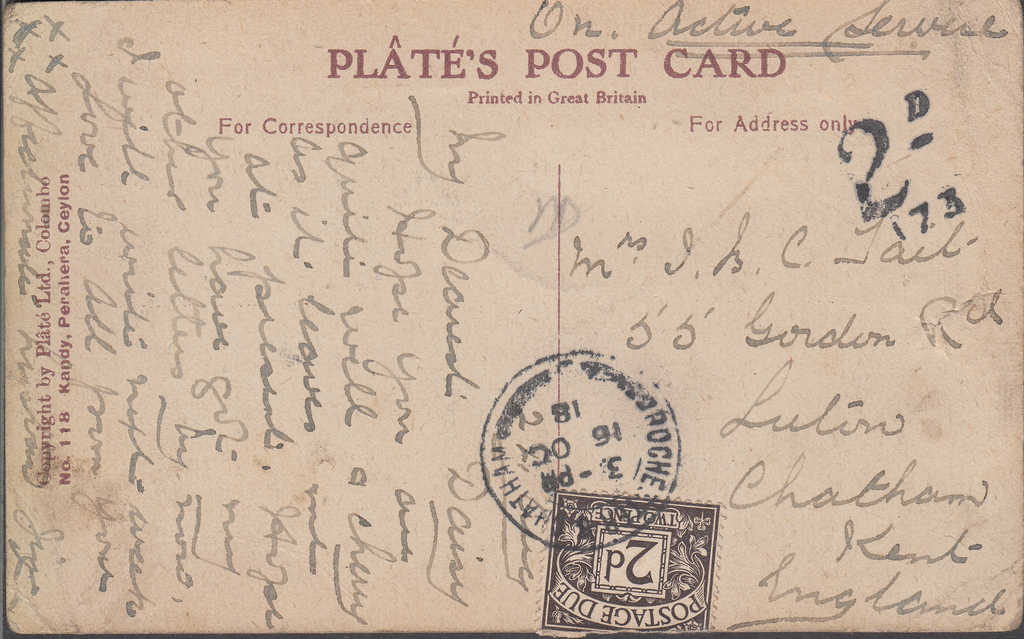 On. Active Service
PLÂTÉ'S POST CARD
Printed in Great Britain
For Correspondence
For Address only
2D
173
Mrs J. B. C. Tait
55 Gordon Rd
Luton
Chatham
Kent
England
My Dearest Daisy
Hope you are
quite well & cherry
as it leaves me
at present. Hope
you have got my
other letters by now.
I will write next week
Love to all from your
x x Affectionate
x x
Copyright by Plâté Ltd., Colombo
No. 118 Kandy, Perahera, Ceylon
ROCHE
CHATHAM
3 - PM
16 OC
18
POSTAGE DUE
2d
TWO PENCE